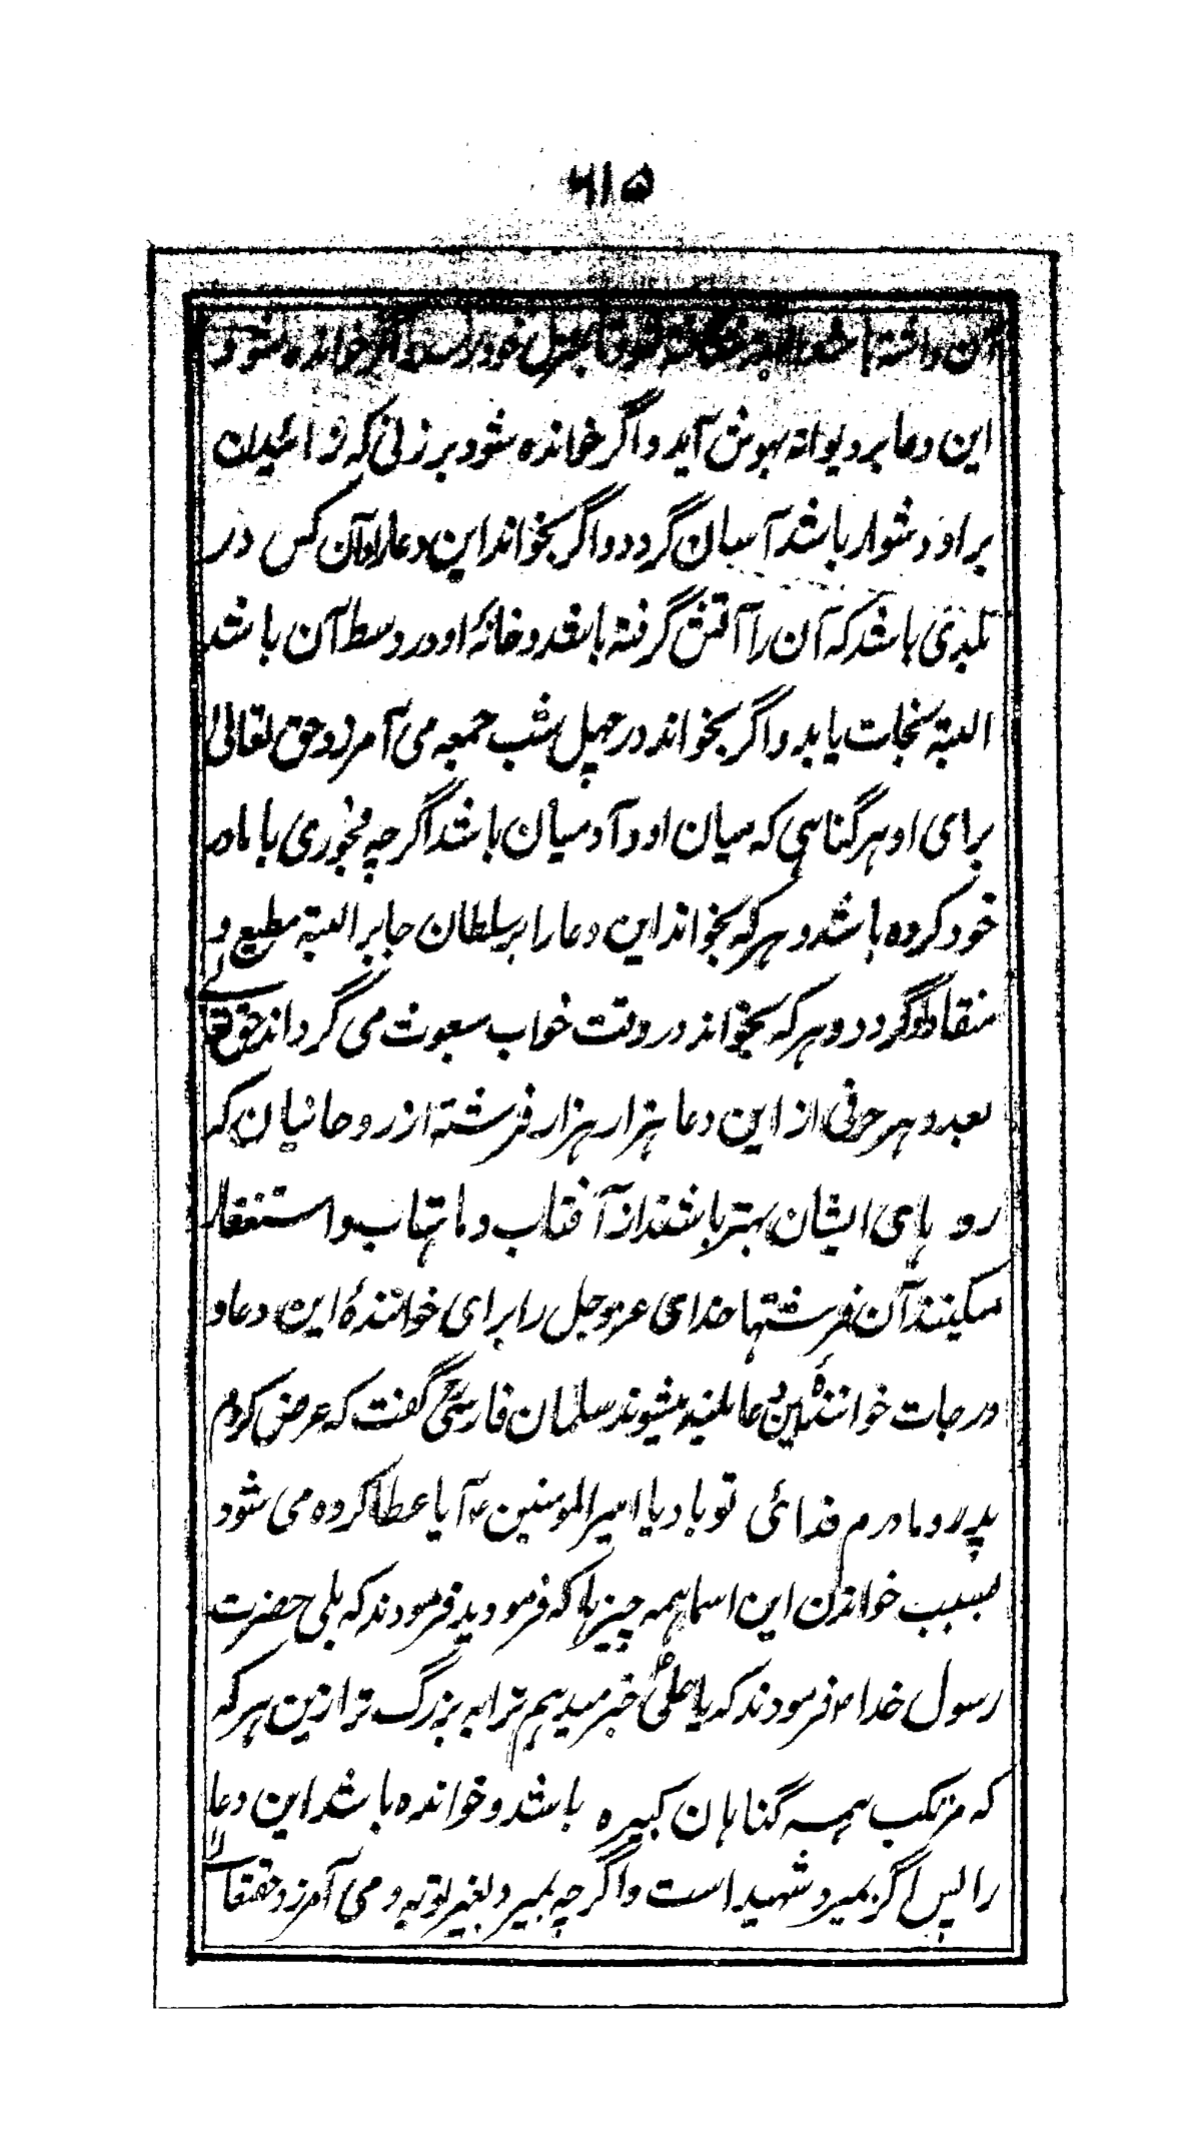 ۶۱۵
آن داشته باشد خود برسد و اگر خوانده شود
این دعا بر دیوانه بهوش آید و اگر خوانده شود بر زنی که زائیدن
بر او دشوار باشد آسان گردد و اگر بخواند این دعا را و آن کس در
بلدی باشد که آن را آتش گرفته باشد و خانهٔ او در وسط آن باشد
البته نجات یابد و اگر بخواند در چهل شب جمعه می آمرزد حق تعالی
برای او هر گناهی که میان او و آدمیان باشد اگر چه فجوری با مادر
خود کرده باشد و هر که بخواند این دعا را بر سلطان جابر البته مطیع و
منقاد او گردد و هر که بخواند در وقت خواب مبعوث می گرداند حق تعالی
بعدد هر حرفی از این دعا هزار هزار فرشته از روحانیان که
رو های ایشان بهتر باشند از آفتاب و ماهتاب و استغفار
میکنند آن فرشتها خدای عزوجل را برای خوانندهٔ این دعا و
درجات خوانندهٔ این دعا بلند میشوند سلمان فارسیؓ گفت که عرض کردم
پدر و مادرم فدائی تو باد یا امیرالمومنین ع آیا عطا کرده می شود
بسبب خواندن این اسما همه چیزها که فرمودید فرمودند که بلی حضرت
رسول خدا ص فرمودند که یا علیؑ خبر میدهم ترا به بزرگ تر ازین هر که
که مرتکب همه گناهان کبیره باشد و خوانده باشد این دعا
را پس اگر بمیرد شهید است و اگر چه بمیرد بغیر توبه و می آمرزد حقتعالی